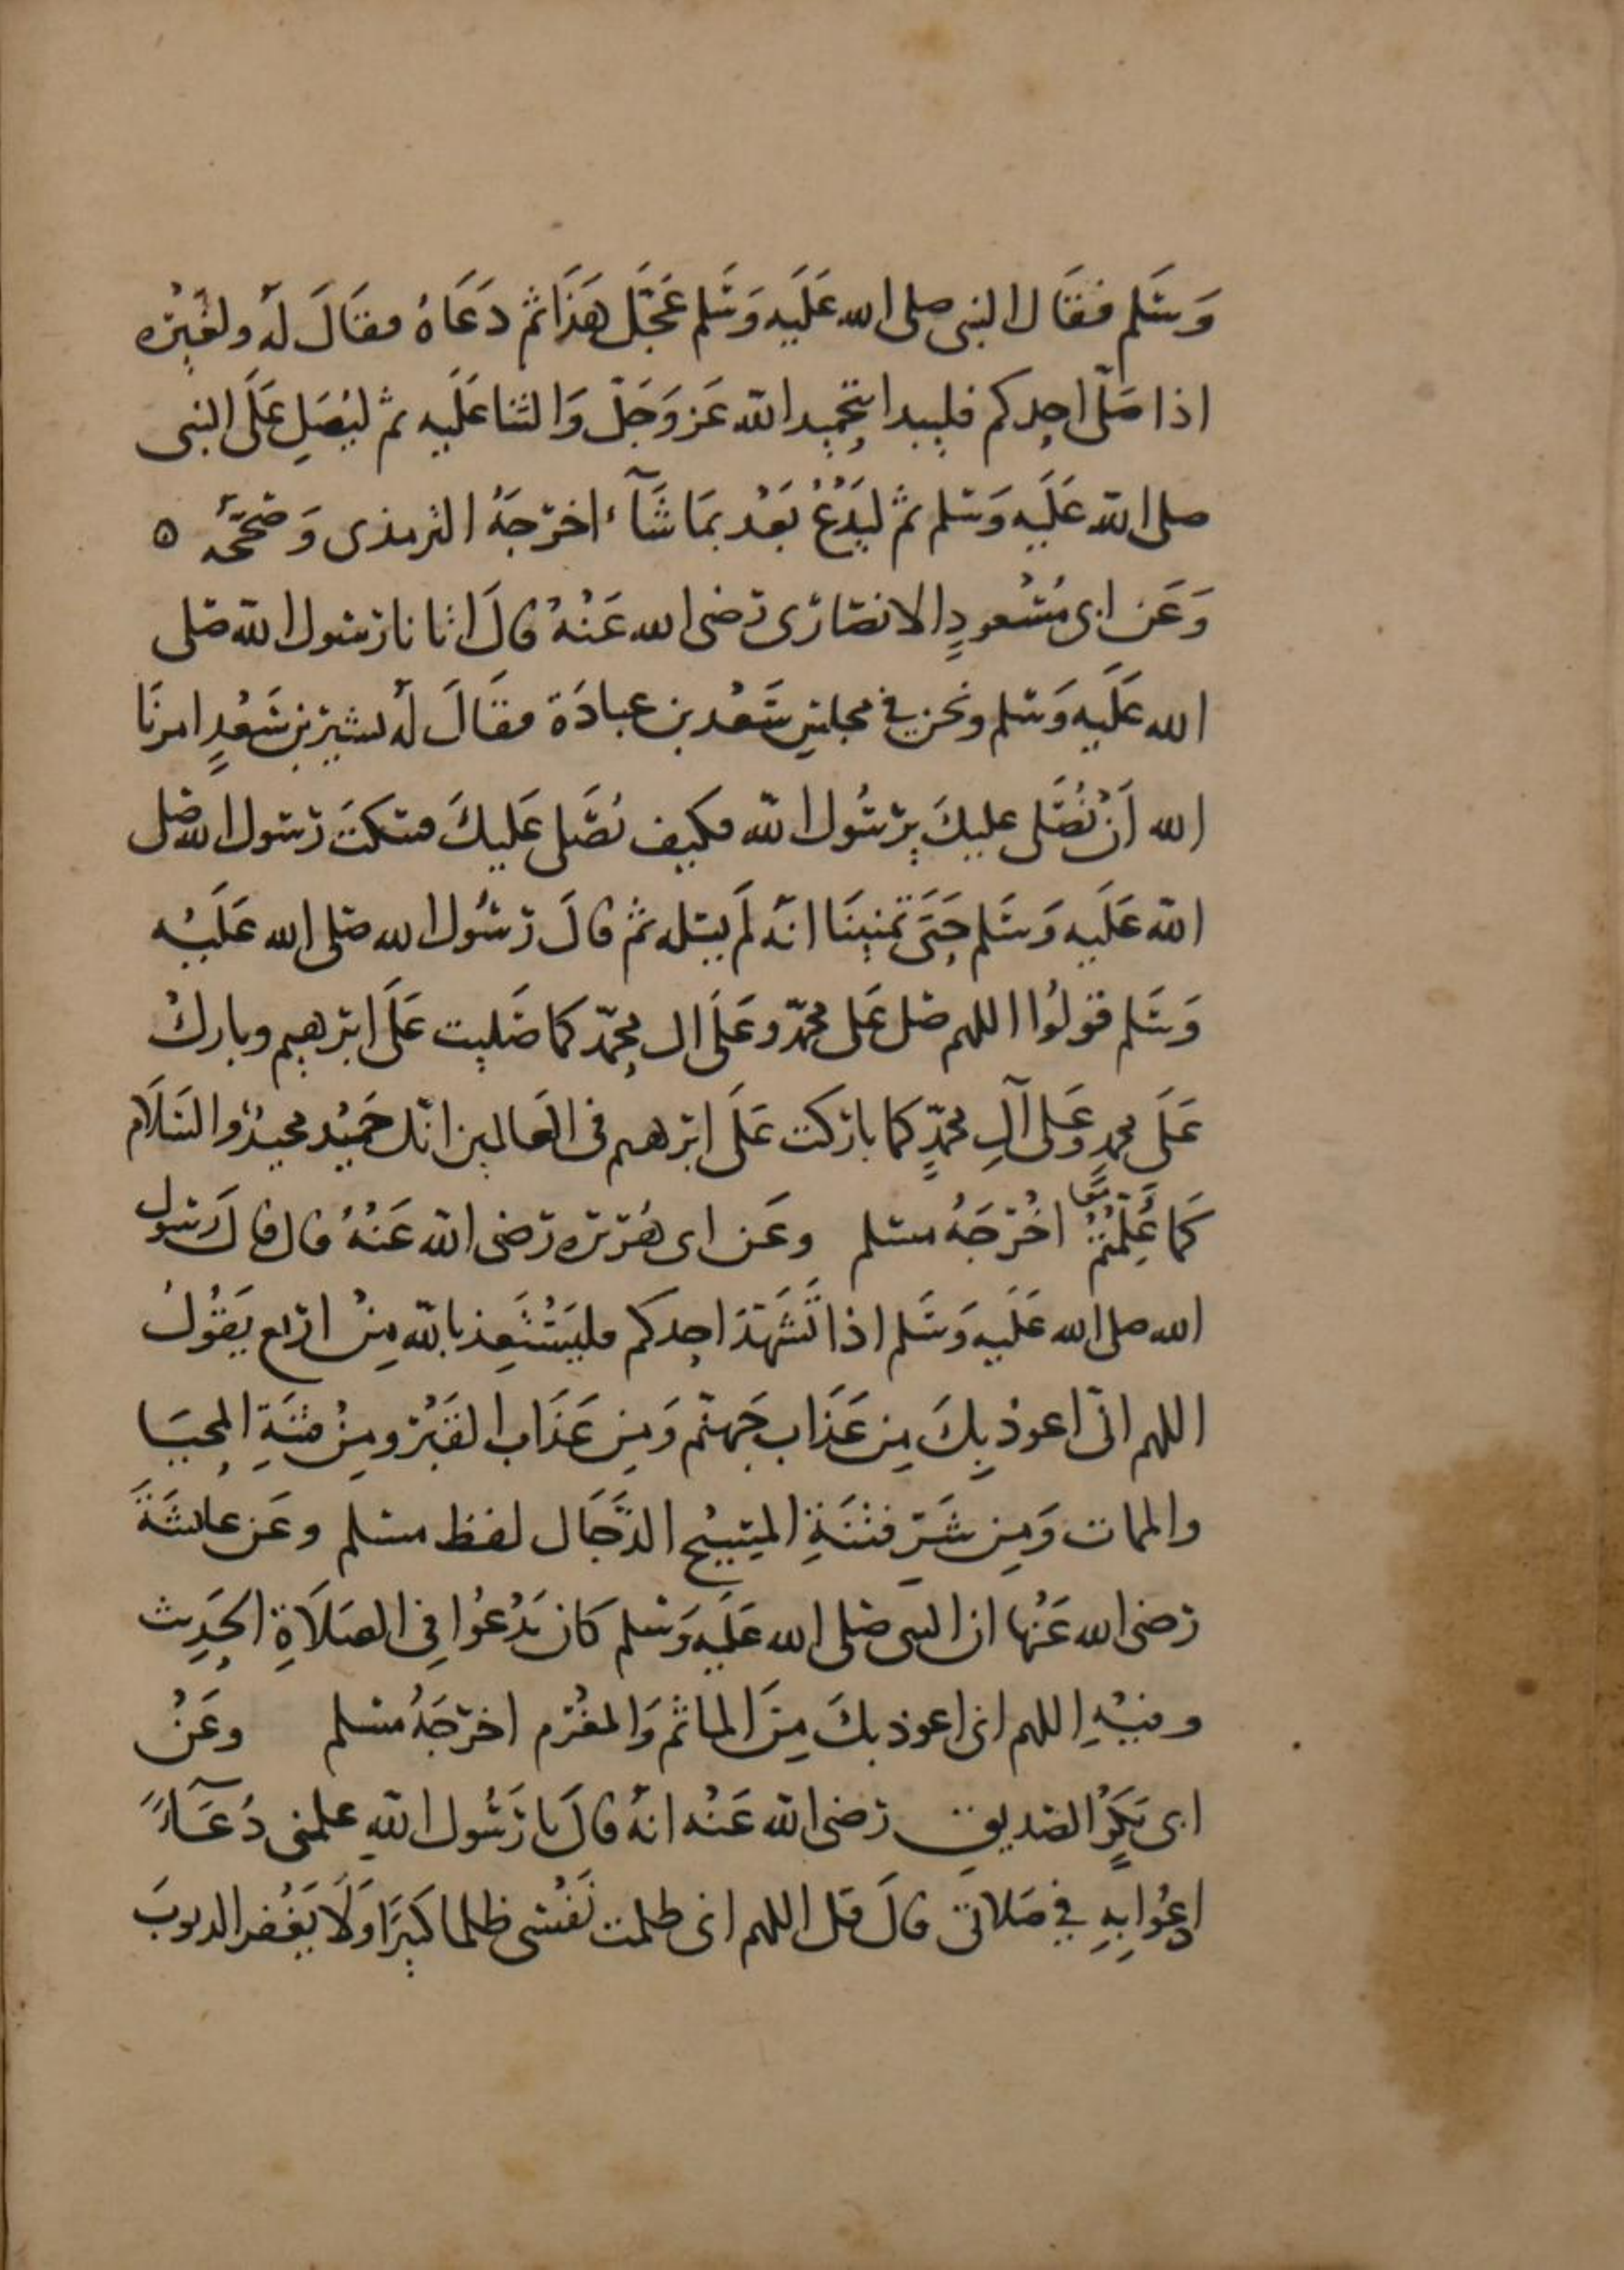 وَسَلم فقَال النبى صلى الله عَلَيه وَسَلم عَجَّلَ هَذَا ثم دَعَاهُ فقَالَ لَهُ ولغَيْرِه
اذا صَلّى احدكم فليبدا بتحميد الله عَز وَجَلّ وَالثنا عَلَيه ثم ليُصَلِ عَلَى النبى
صلى الله عَلَيه وَسَلم ثم ليَدْعُ بَعْد بمَا شَآء اخرَجَهُ الترمذى وَصَحَّحَه ه
وَعَن ابى مَسْعودٍ الانصَارى رَضى الله عَنْهُ قالَ اتانا رَسول الله صَلى
الله عَلَيه وَسَلم ونحن في مجلسِ سَعْد بن عبادَة فقَالَ لَه بشير بن سَعْدٍ امرنَا
الله اَنْ نُصَلى عليكَ يرسُول الله فكيف نُصَلى عَليكَ فسَكتَ رَسول الله صَلى
الله عَلَيه وَسَلم حَتَى تمنينَا انه لَم يسَله ثم قالَ رَسُول الله صَلى الله عَلَيْه
وَسَلم قولوُا اللهم صَل عَلى محمّد وعَلَى ال محمّد كما صَليت عَلَى ابرهيم وباركْ
عَلَى محمدٍ وعَلى آلِ محمّدٍ كما باركت عَلَى ابرهيم فى العَالمين انك حَميْد مجيدٌ والسَلاَم
كَما عُلِّمْتُمْ اخْرَجَهُ مسلم وعَن ابى هُرَيرَه رَضى الله عَنْهُ قال قالَ رَسول
الله صلى الله عَلَيه وَسَلم اذا تَشَهَّدَ احدكم فليَسْتَعِذ بالله مِنْ اربَع يَقُولُ
اللهم انى اعوذ بِكَ مِن عَذَاب جَهنّم وَمِن عَذَاب القَبْرِ ومِنْ فتنَةِ المحيَا
والممات وَمِن شَرّ فتْنَةِ المَسِيْح الدَّجَال لفظ مسلم وعَن عائشَةَ
رَضى الله عَنْها ان النبى صَلى الله عَلَيه وَسَلم كَان يَدْعُوا فِى الصَلاَةِ الحَدِيث
وفيْهِ اللهم انى اعوذ بكَ مِنَ الماثَم وَالمغْرَم اخرَجَهُ مسلم وعَنْ
ابى بَكرٍ الصّديق رَضى الله عَنْه انهُ قالَ يا رَسُول اللهِ علمنى دُعَآءً
ادعُوا بِهِ في صَلاتى قالَ قل اللهم انى ظلمت نَفْسى ظلما كبيَرًا وَلاَ يَغْفر الذنوبَ